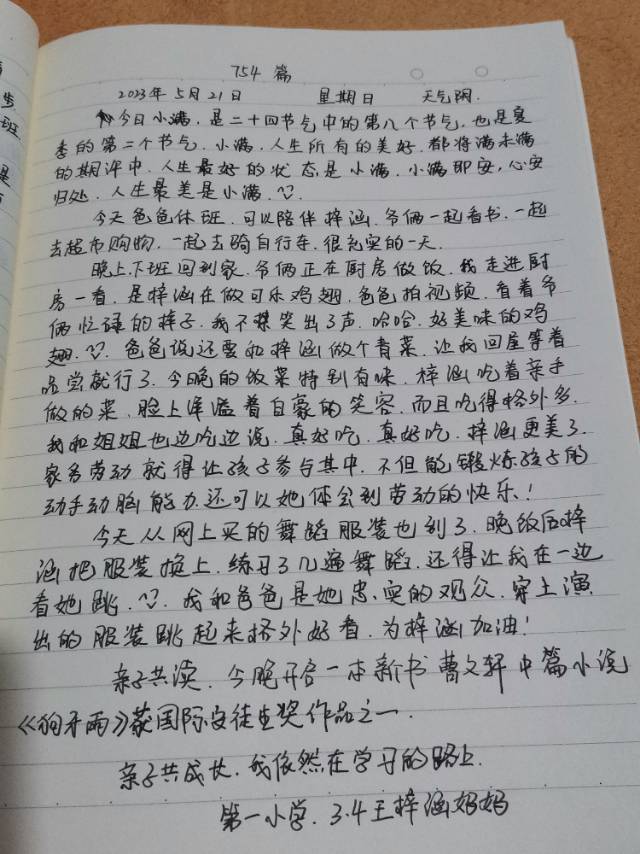 754篇
2023年5月21日 星期日 天气阴.
今日小满,是二十四节气中的第八个节气,也是夏
季的第二个节气.小满,人生所有的美好,都将满未满
的期许中.人生最好的状态是小满.小满即安,心安
归处.人生最美是小满.
今天爸爸休班.可以陪伴梓涵.爷俩一起看书.一起
去超市购物.一起去骑自行车.很充实的一天.
晚上下班回到家.爷俩正在厨房做饭.我走进厨
房一看.是梓涵在做可乐鸡翅.爸爸拍视频.看着爷
俩忙碌的样子.我不禁笑出了声.哈哈.好美味的鸡
翅.爸爸说还要和梓涵做个青菜.让我回屋等着
品尝就行了.今晚的饭菜特别有味.梓涵吃着亲手
做的菜.脸上洋溢着自豪的笑容.而且吃得格外多.
我和姐姐也边吃边说.真好吃.真好吃.梓涵更美了.
家务劳动就得让孩子参与其中.不但能锻炼孩子的
动手动脑能力.还可以她体会到劳动的快乐!
今天从网上买的舞蹈服装也到了.晚饭后梓
涵把服装换上.练习了几遍舞蹈.还得让我在一边
看她跳.我和爸爸是她忠实的观众.穿上演
出的服装跳起来格外好看.为梓涵加油!
亲子共读.今晚开启一本新书曹文轩中篇小说
《狗牙雨》获国际安徒生奖作品之一.
亲子共成长.我依然在学习的路上.
第一小学.3.4王梓涵妈妈